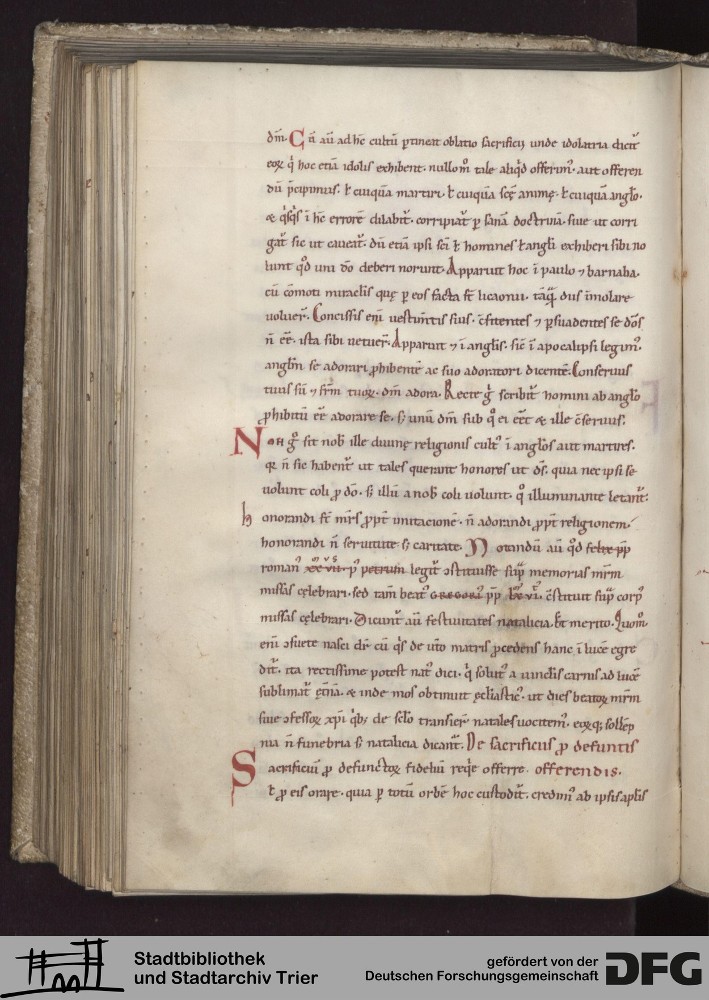 dm̄. Cū aū ad hc̄ cultū ꝑtineat oblatio sacrificij unde idolatria dicit᷑
eoꝝ q̇ hoc etiā idolis exhibent. nullom̄ tale aliq̇d offerim᷒. aut offeren
dū p̄cipimus. ł cuiquā martiri. ł cuiquā scę̄ animę. ł cuiquā anglo.
& q̇sq̇s ī hc̄ errorē dilabit᷑. corripiat᷑ ꝑ sanā doctrinā. siue ut corri
gat᷑ sic ut caueat᷑. dū etiā ipsi sc̄i ł homines ł angli exhiberi sibi no
lunt qd̄ uni dō deberi norunt. Apparuit hoc ī paulo ⁊ barnaba.
cū cōmoti miraclis quę ꝑ eos facta st̄ licaonii. tāq̄ diis īmolare
uoluer̄. Concissis eni᷒ uestim̄tis suis. c̄fitentes ⁊ ꝑsuadentes se dōs
n̄ ēē. ista sibi uetuer̄. Apparuit ⁊ ī anglis. sic̄ ī apocalipsi legim᷒.
anglm̄ se adorari ꝓhibentē ac suo adoratori dicentē. Conseruus
tuus sū ⁊ frm̄ tuoꝝ. dm̄ adora. Recte g̊ scribit᷑ homini ab anglo
ꝓhibitū ēē adorare se. s; unū dm̄ sub q̊ ei eēt & ille c̄seruus.
Non g̊ sit nob̄ ille diuinę religionis cult᷒ ī anglos aut martires.
qꝛ n̄ sic habent᷑ ut tales querant honores ut ds̄. quia nec ipsi se
uolunt coli ꝓ dō. s; illū a nob̄ coli uolunt. q̊ illuminante letant᷑.
honorandi st̄ mr̄s ꝓpt̄ imitacionē. n̄ adorandi ꝓpt̄ religionem.
honorandi n̄ seruitute s; caritate. Notandū aū qd̄ felix pp̄
roman᷒ xx̊ vii. p᷒ petrum legit᷑ ɔstituisse sup̄ memorias mr̄m
missas cęlebrari. sed tam̄ beat᷒ GREGORI᷒ pp̄ lx̊ vi. c̄stituit sup̄ corp᷒
missas cęlebrari. Dicunt᷑ aū festiuitates natalicia. Et merito. Quom̊
eni᷒ ɔsuete nasci dr̄ cū q̇s de ut̄o matris ꝓcedens hanc ī lucē egre
dit᷑. ita rectissime potest nat᷒ dici. q̇ solut᷒ a uinclis carnis ad lucē
sublimat᷑ ęt̄nā. & inde mos obtinuit ęcl̄iastic᷒. ut dies beatoꝝ mr̄m
siue ɔfessoꝝ xp̄i qb; de sclō transier̄ natales uocitem᷒. eoꝝq; sollēp
nia n̄ funebria s; natalicia dicant᷑. De sacrificiis ꝓ defuntis
Sacrificiū ꝓ defunctoꝝ fideliū req̇e offerre. offerendis.
ł ꝓ eis orare. quia ꝑ totū orbē hoc custodit᷑. credim᷒ ab ipsis aplis
Stadtbibliothek
und Stadtarchiv Trier
gefördert von der
Deutschen Forschungsgemeinschaft
DFG